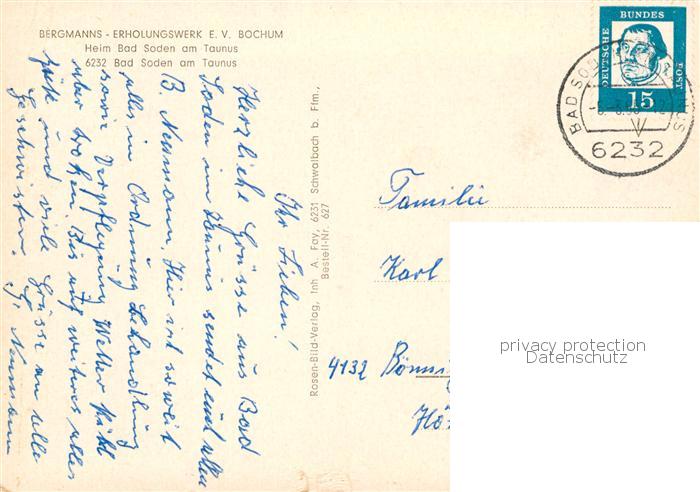 BERGMANNS - ERHOLUNGSWERK E. V. BOCHUM
Heim Bad Soden am Taunus
6232 Bad Soden am Taunus
Ihr Lieben!
Herzliche Grüsse aus Bad
Soden im Taunus sendet euch allen
B. Neumann, Hier ist soweit
alles in Ordnung Behandlung
sowie Verpflegung Wetter kühl
aber trocken. Bis auf weiteres alles
gute und viele Grüsse an alle
Geschwister. G. Neumann
Rosen-Bild-Verlag, Inh A. Fay, 6231 Schwalbach b. Ffm.,
Bestell-Nr. 627
DEUTSCHE BUNDES POST
15
BAD SO
6232
Familie
Karl
4132
privacy protection
Datenschutz